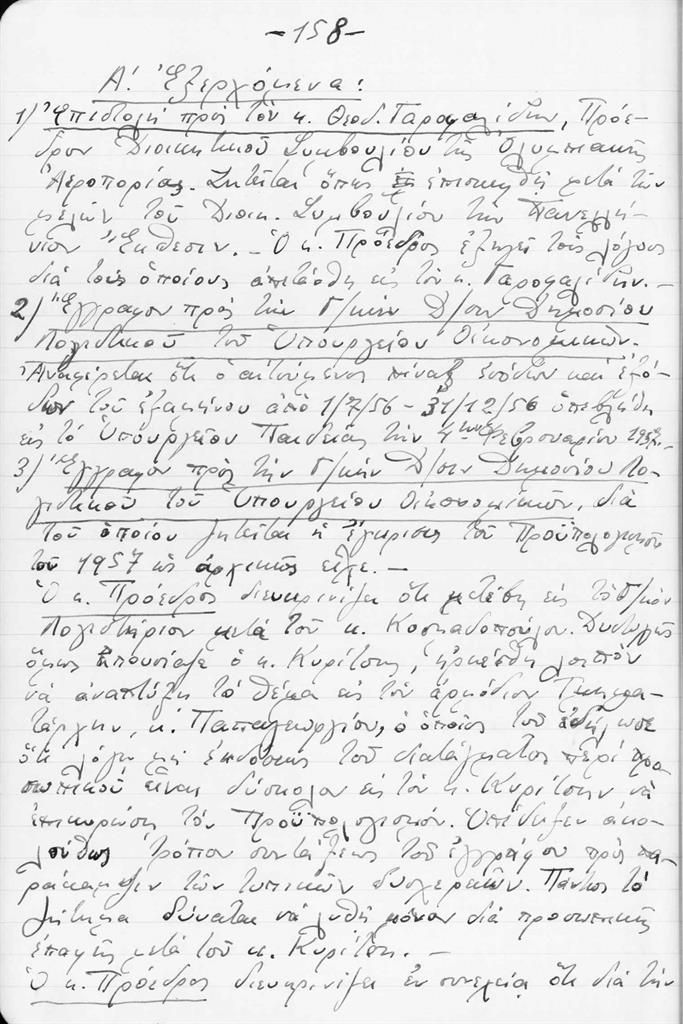 -158-
Α'. Ἐξερχόμενα:
1) Ἐπιστολή πρός τόν κ. Θεοδ. Γαροφαλίδην, Πρόε-
δρον Διοικητικοῦ Συμβουλίου τῆς Ὀλυμπιακῆς
Ἀεροπορίας. Ζητεῖται ὅπως ἐπισκεφθῇ μετά τῶν
μελῶν τοῦ Διοικ. Συμβουλίου τήν Πανελλή-
νιον Ἔκθεσιν. - Ὁ κ. Πρόεδρος ἐξηγεῖ τούς λόγους
διά τούς ὁποίους ἀπετάθη εἰς τόν κ. Γαροφαλίδην. -
2) Ἔγγραφον πρός τήν Γ/κήν Δ/σιν Δημοσίου
Λογιστικοῦ τοῦ Ὑπουργείου Οἰκονομικῶν.
Ἀναφέρεται ὅτι ὁ αἰτούμενος πίναξ ἐσόδων καί ἐξό-
δων τοῦ ἑξαμήνου ἀπό 1/7/56 - 31/12/56 ὑπεβλήθη
εἰς τό Ὑπουργεῖον Παιδείας τήν Φεβρουαρίου 1957. -
3) Ἔγγραφον πρός τήν Γ/κήν Δ/σιν Δημοσίου Λο-
γιστικοῦ τοῦ Ὑπουργείου Οἰκονομικῶν, διά
τοῦ ὁποίου ζητεῖται ἡ ἔγκρισις τοῦ Προϋπολογισμοῦ
τοῦ 1957 ὡς ἀρχικῶς εἶχε. -
Ὁ κ. Πρόεδρος διευκρινίζει ὅτι μετέβη εἰς τό Γ/κόν
Λογιστήριον μετά τοῦ κ. Κοσμαδοπούλου. Δυστυχῶς
ὅμως ἀπουσίαζε ὁ κ. Κυρίτσης, ἠρκέσθη λοιπόν
νά ἀναπτύξῃ τό θέμα εἰς τόν ἁρμόδιον Τμημα-
τάρχην, κ. Παπαγεωργίου, ὁ ὁποῖος τοῦ ἐδήλωσε
ὅτι λόγῳ τῆς ἐκδόσεως τοῦ διατάγματος περί προ-
σωπικοῦ εἶναι δύσκολον εἰς τόν κ. Κυρίτσην νά
ἐπικυρώσῃ τόν Προϋπολογισμόν. Ὑπέδειξεν ἀκο-
λούθως τρόπον συντάξεως τοῦ ἐγγράφου πρός πα-
ράκαμψιν τῶν τυπικῶν δυσχερειῶν. Πάντως τό
ζήτημα δύναται νά λυθῇ μόνον διά προσωπικῆς
ἐπαφῆς μετά τοῦ κ. Κυρίτση. -
Ὁ κ. Πρόεδρος διευκρινίζει ἐν συνεχείᾳ ὅτι διά τήν